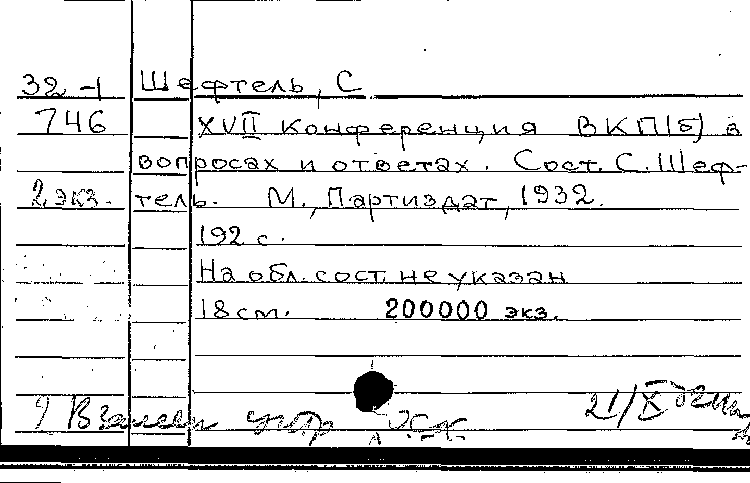 32-1 Шефтель, С
746 XVII Конференция ВКП(б) в
вопросах и ответах. Сост. С. Шеф-
2 экз. тель. М., Партиздат, 1932.
192 с.
На обл. сост. не указан
18 см. 200000 экз.
Взамен 21/X